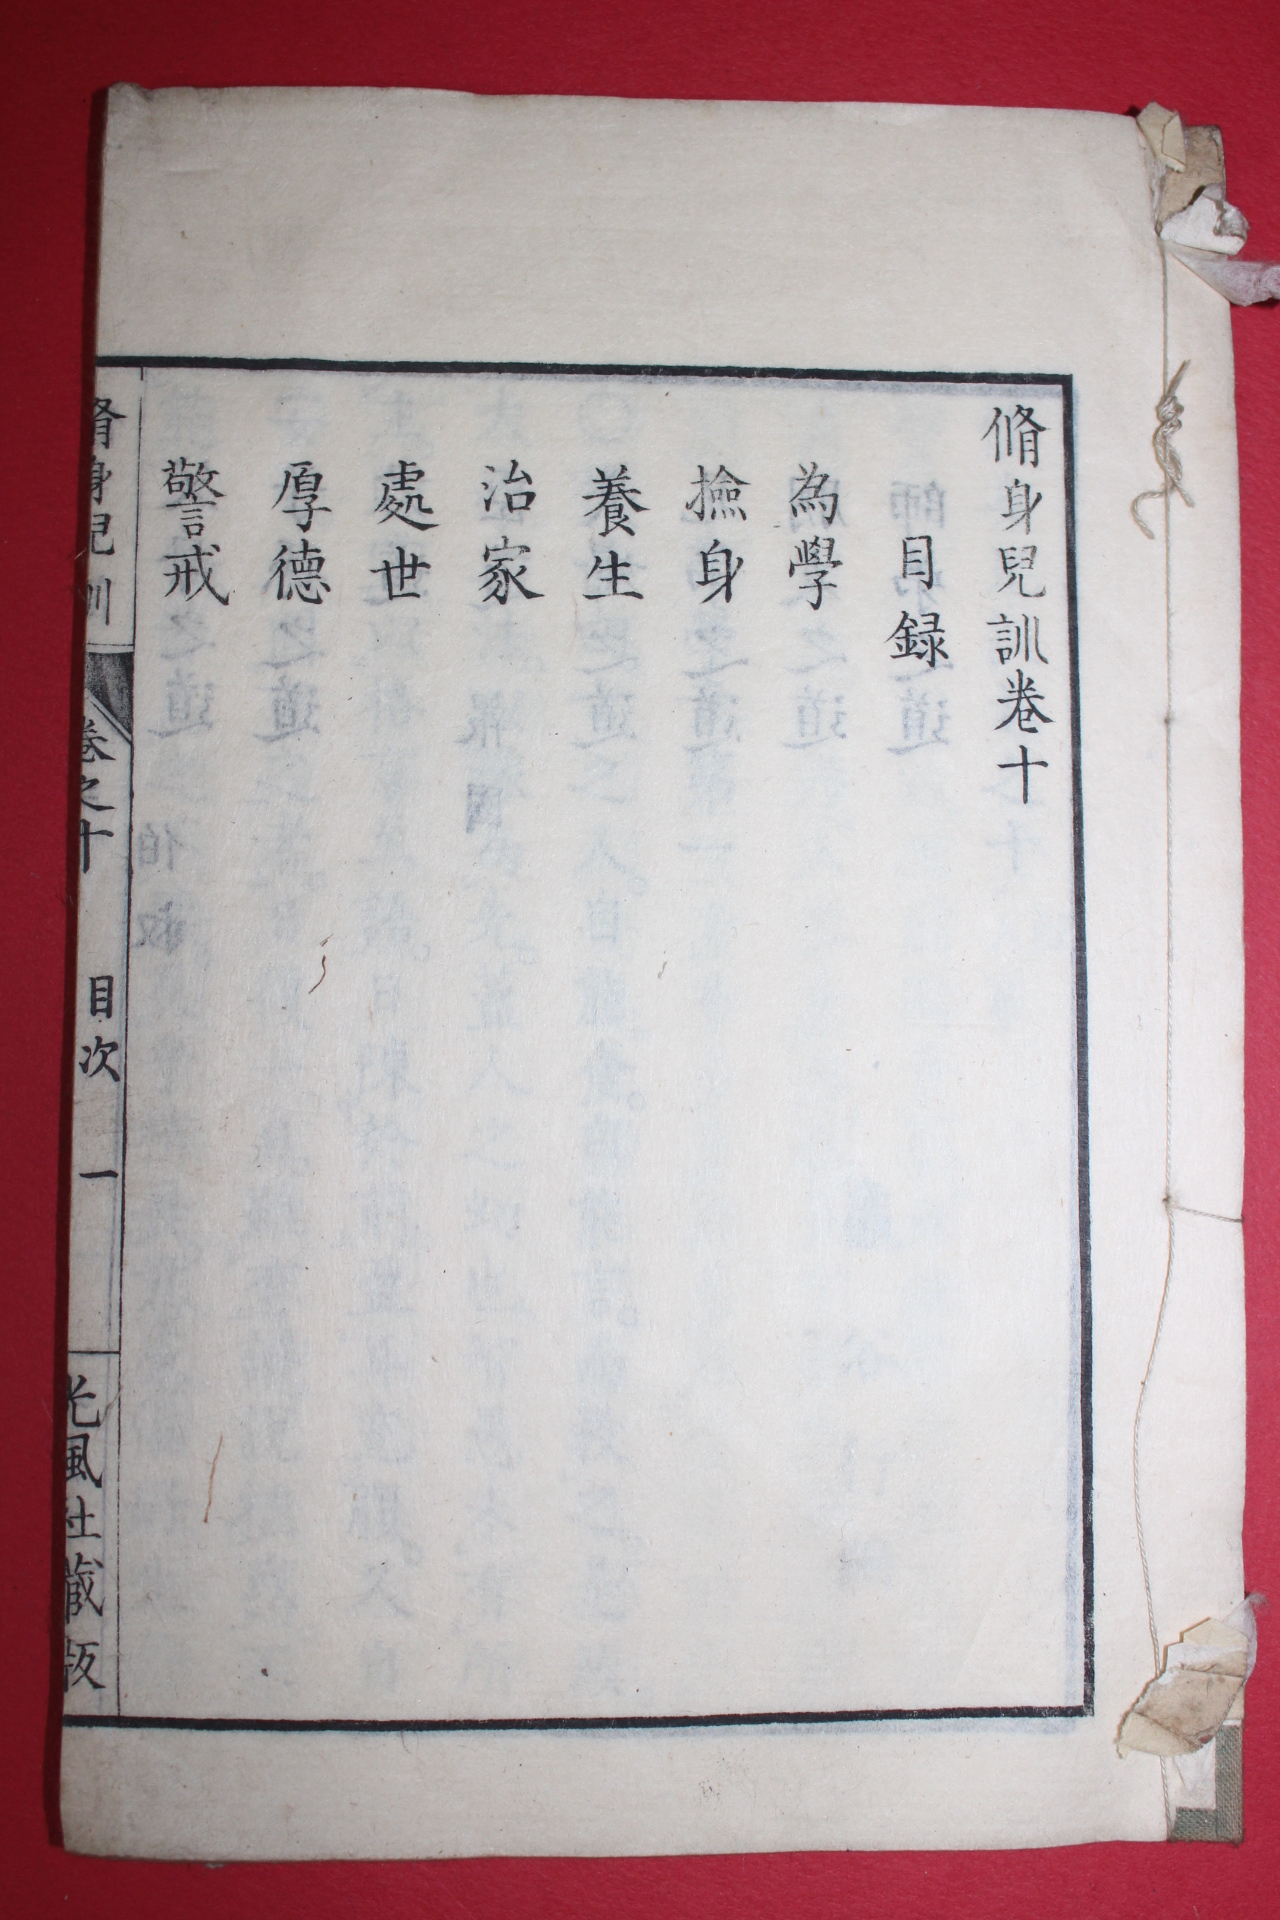 脩身兒訓卷十
目録
為學
撿身
養生
治家
處世
厚德
警戒
脩身兒訓
卷之十
目次
一
光風社藏板